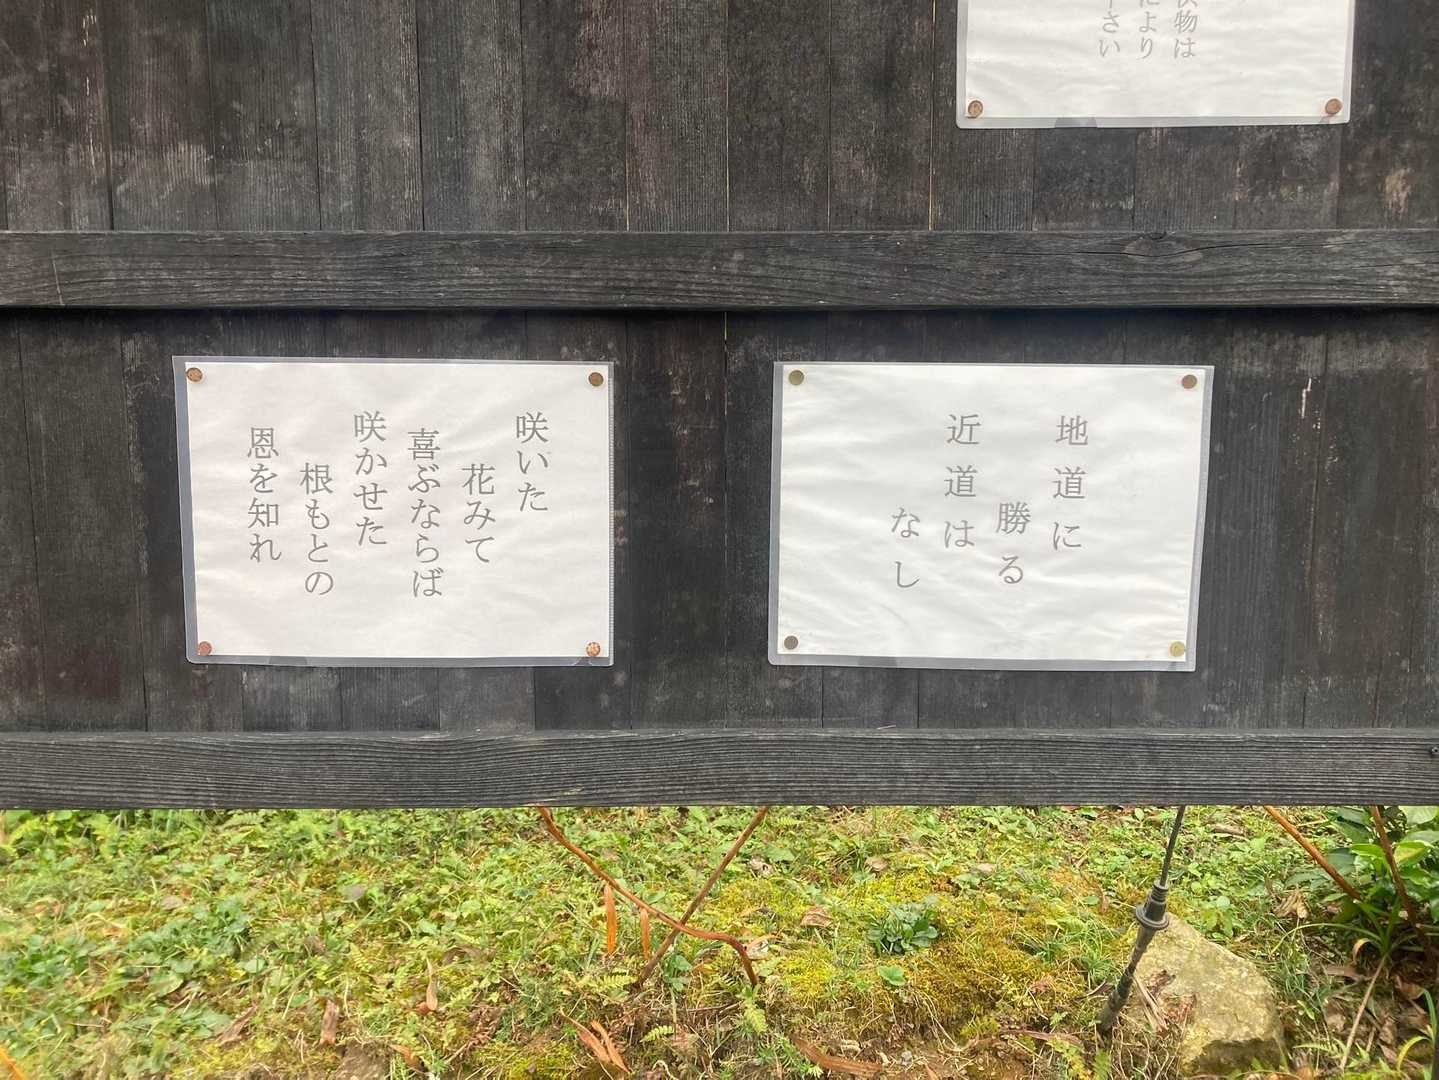 物は
により
下さい
地道に
勝る
近道は
なし
咲いた
花みて
喜ぶならば
咲かせた
根もとの
恩を知れ